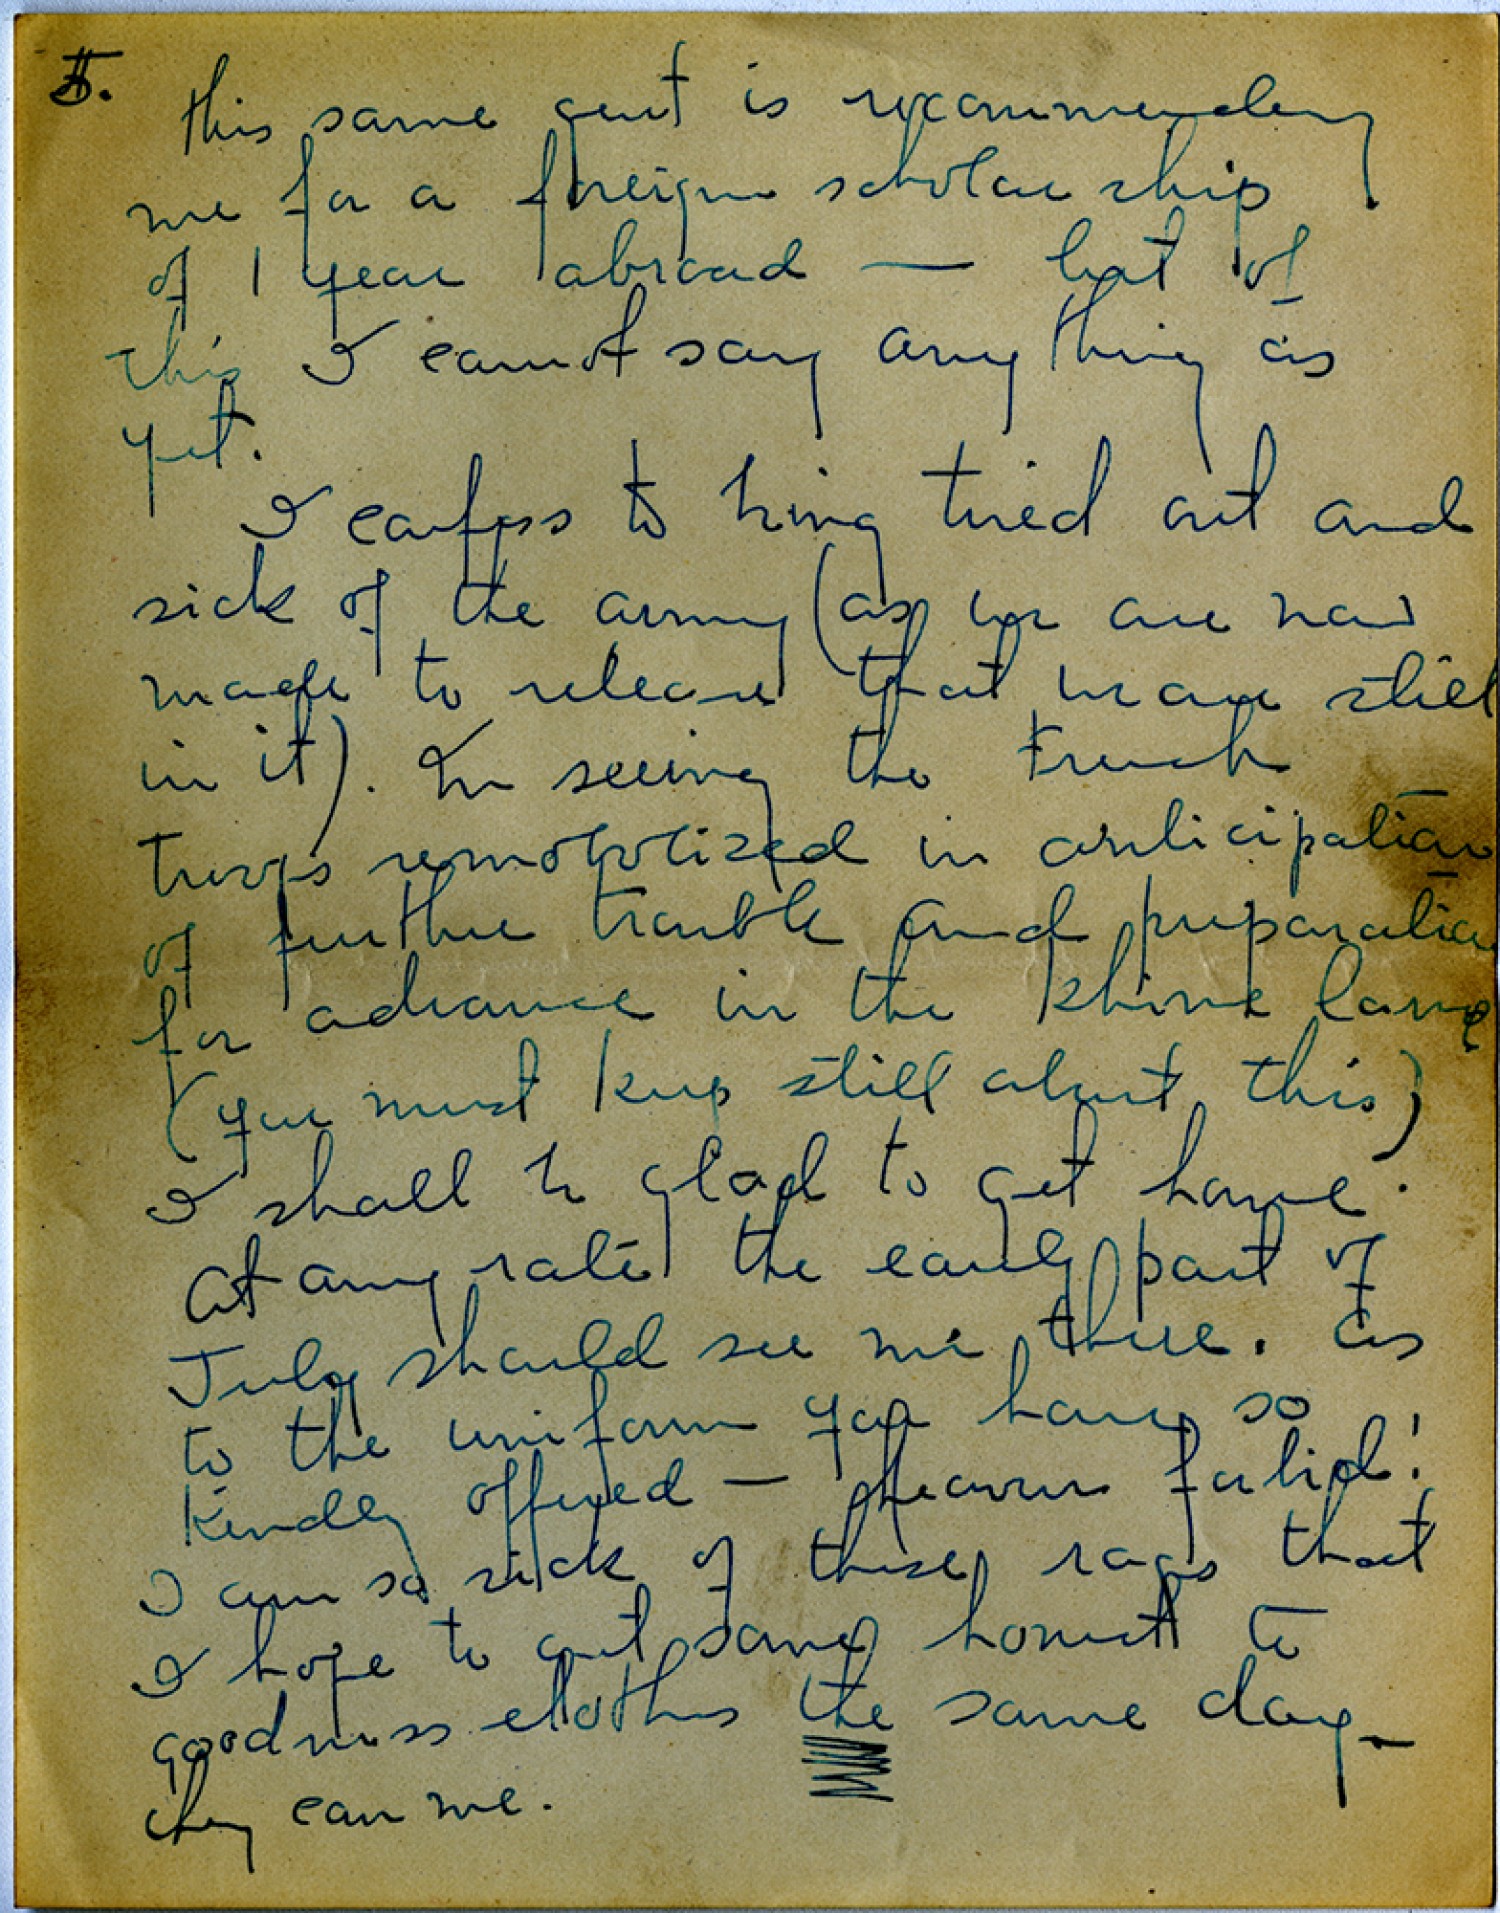 5.
this same gent is recommending
me for a foreign scholarship
of 1 year abroad — but of
this I cannot say anything as
yet.
I confess to being tired out and
sick of the army (as we are now
made to release that we are still
in it). In seeing the French
troops remobolized in anticipation
of further trouble and preparation
for advance in the Rhine land
(you must keep still about this)
I shall be glad to get home.
At any rate the early part of
July should see me there. As
to the uniform you have so
kindly offered — Heavens forbid!
I am so sick of these rags that
I hope to get some honest to
goodness clothes the same day—
they can me.